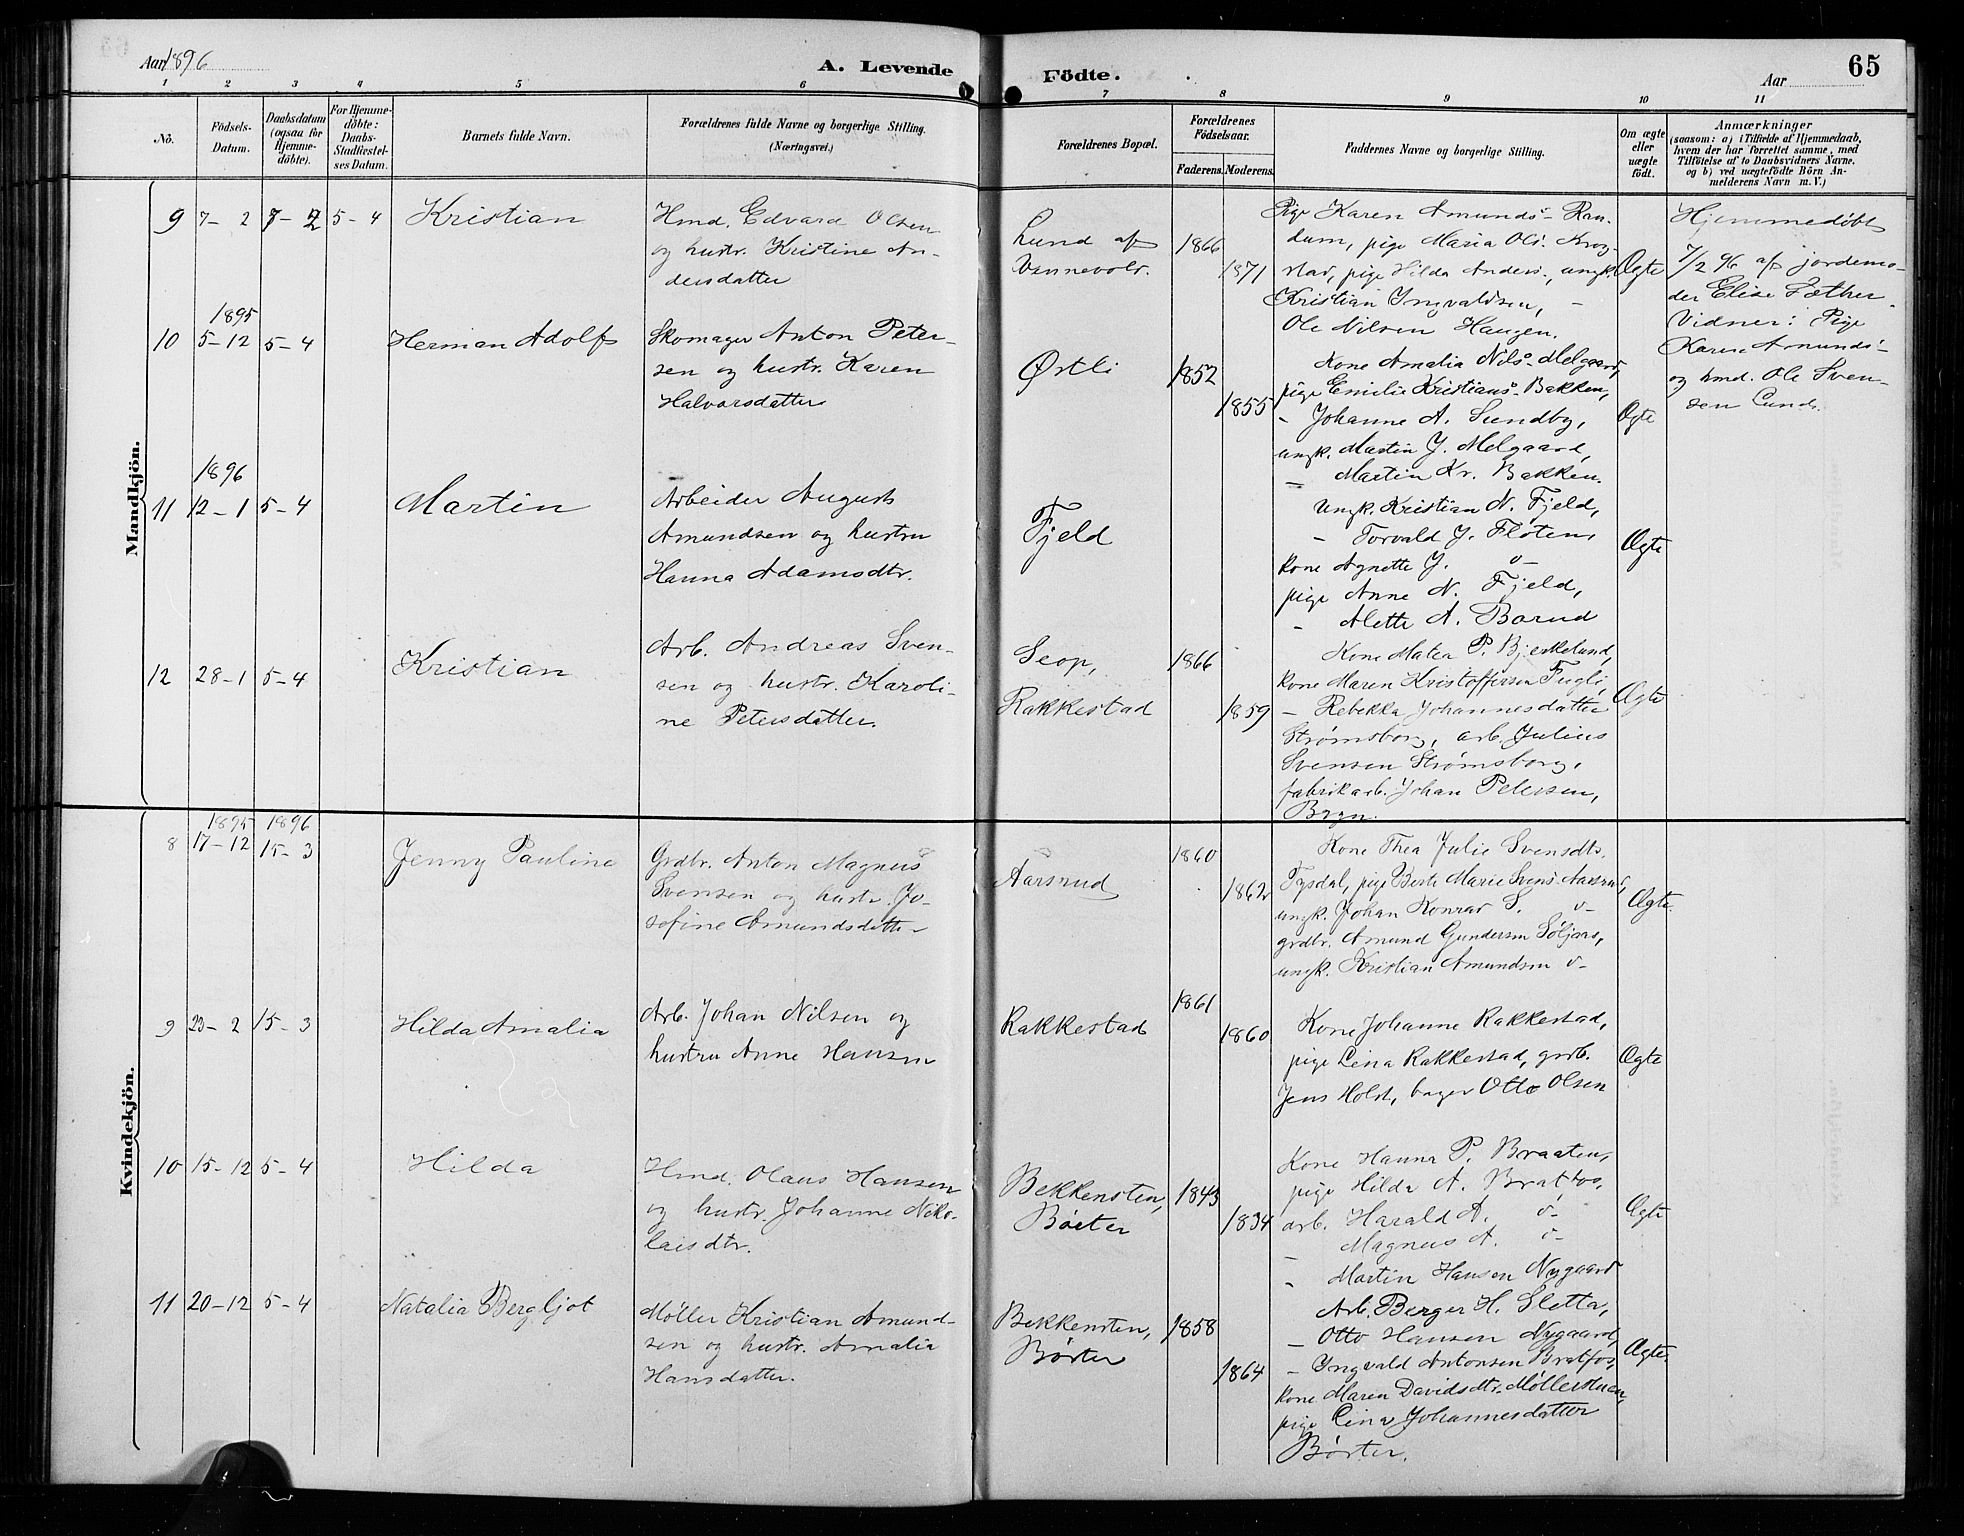 Aar 1896
A. Levende Födte.
Aar
65
1 2 3 4 5 6 7 8 9 10 11
No.
Födsels-
Datum.
Daabsdatum
(ogsaa för
Hjemme-
döbte).
For Hjemme-
döbte:
Daabs-
Stadfæstel-
ses Datum.
Barnets fulde Navn.
Forældrenes fulde Navne og borgerlige Stilling.
(Næringsvei.)
Forældrenes Bopæl.
Forældrenes
Födselsaar.
Faderens. Moderens.
Faddernes Navne og borgerlige Stilling.
Om ægte
eller
uægte
födt.
Anmærkninger
(saasom: a) i Tilfælde af Hjemmedaab,
hvem der har forrettet samme, med
Tilföielse af to Daabsvidners Navne,
og b) ved uægtefödte Börn An-
melderens Navn m. V.)
Mandkjön.
9 7-2 7-2 5-4 Kristian
Hmd. Edvard Olsen
og hustr. Kristine An-
dersdatter
Lund af
Vennevold.
1866
1871
Pige Karen Amunds- Ran-
dum, pige Maria Ols. Krog-
stad, pige Hilda Anders., ungk.
Kristian Yngvaldsen,
Ole Nilsen Haugen.
Ægte
Hjemmedöbt
7/2 96 af jordemo-
der Elise Sæther.
Vidner: Pige
Karen Amunds-
og hmd. Ole Sven-
sen Lund.
10 1895
5-12 5-4 Herman Adolf
Skomager Anton Peter-
sen og hustr. Karen
Halvorsdatter
Østli
1852
1855
Kone Amalia Nils- Melgaard,
pige Emilie Kristians- Bakken,
- Johanne A. Sundby,
ungk. Martin J. Melgaard,
- Martin Kr. Bakken.
Ægte
11 1896
12-1 5-4 Martin
Arbeider August
Amundsen og hustru
Hanna Adamsdtr.
Fjeld
Ungk. Kristian N. Fjeld,
- Torvald J. Fløten,
kone Agnette J. v-
pige Anne N. Fjeld,
- Alette A. Borud
Ægte
12 28-1 5-4 Kristian
Arb. Andreas Sven-
sen og hustr. Karoli-
ne Petersdatter.
Seop,
Rakkestad
1866
1859
Kone Matea P. Bjerkelund,
kone Maren Kristoffersen Fugli,
- Rebekka Johannesdatter
Strømsborg, arb. Julius
Svensen Strømsborg,
fabrikarb. Johan Petersen,
Bryn.
Ægte
Kvindekjön.
8 1895 1896
17-12 15-3 Jenny Pauline
Grdbr. Anton Magnus
Svensen og hustr. Jo-
sefine Amundsdatter
Aarsrud
1860
1862
Kone Thea Julie Svensdtr.
Tysdal, pige Berte Marie Svens- Aarsrud,
ungk. Johan Konrad S. v-
grdbr. Amund Gundersen Søljaas,
ungk. Kristian Amundsen v-
Ægte.
9 23-2 15-3 Hilda Amalia
Arb. Johan Nilsen og
hustru Anne Hansen
Rakkestad
1861
1860
Kone Johanne Rakkestad,
pige Lina Rakkestad, grb.
Jens Holst, bager Otto Olsen
Ægte
10 15-12 5-4 Hilda
Hmd. Olaus Hansen
og hustr. Johanne Niko-
laisdtr.
Bekkensten,
Börter
1843
1834
Kone Hanna P. Braaten,
pige Hilda A. Bratfos,
arb. Harald A. v-
- Magnus A. v-
- Martin Hansen Nygaard
Ægte
11 20-12 5-4 Natalia Bergljot
Møller Kristian Amund-
sen og hustr. Amalia
Hansdatter.
Bekkensten,
Börter
1858
1864
Arb. Berger H. Sletta,
- Otto Hansen Nygaard,
- Yngvald Antonsen Bratfos,
kone Maren Davidsdtr. Möllerstuen,
pige Lina Johannesdatter
Börter.
Ægte.